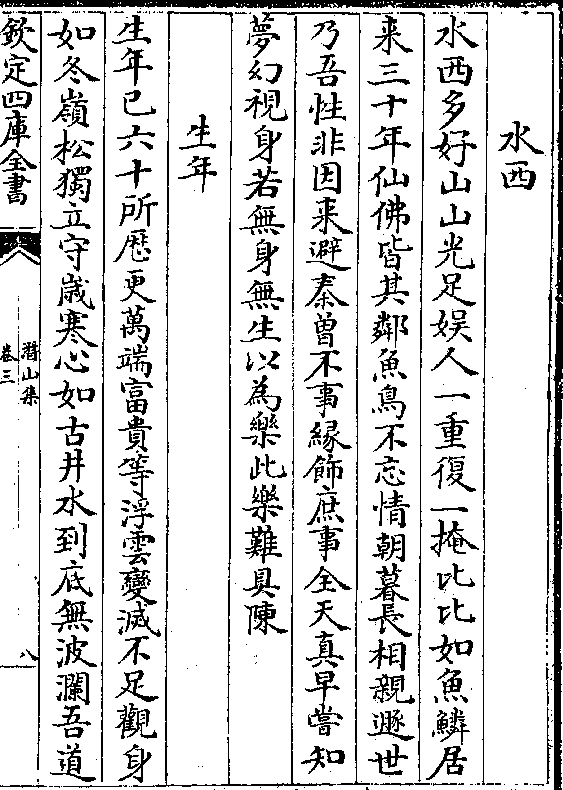 水西
水西多好山山光足娱人一重復一掩比比如魚鱗居
来三十年仙佛皆其鄰魚鳥不忘情朝暮長相親遯世
乃吾性非因来避秦曾不事緣飾庶事全天真早嘗知
夢幻視身若無身無生以為樂此樂難具陳
生年
生年已六十所歴更萬端富貴等浮雲變滅不足觀身
如冬嶺松獨立守歲寒心如古井水到底無波瀾吾道
欽定四庫全書
潛山集
卷三
八